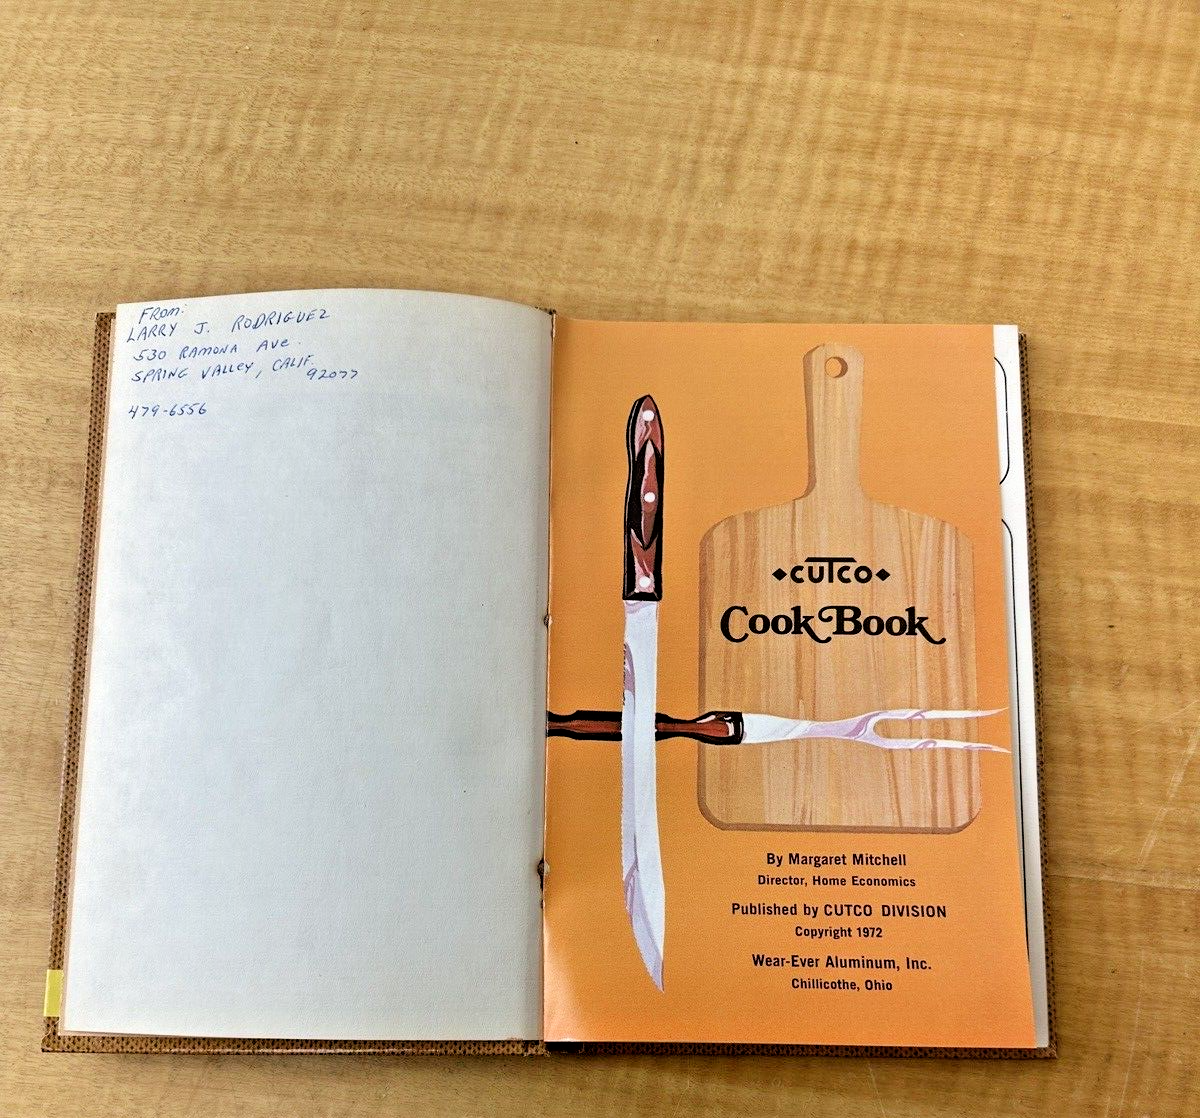 From:
LARRY J. RODRIGUEZ
530 RAMONA AVE.
SPRING VALLEY, CALIF.
92077
479-6556
CUTCO
Cook Book
By Margaret Mitchell
Director, Home Economics
Published by CUTCO DIVISION
Copyright 1972
Wear-Ever Aluminum, Inc.
Chillicothe, Ohio